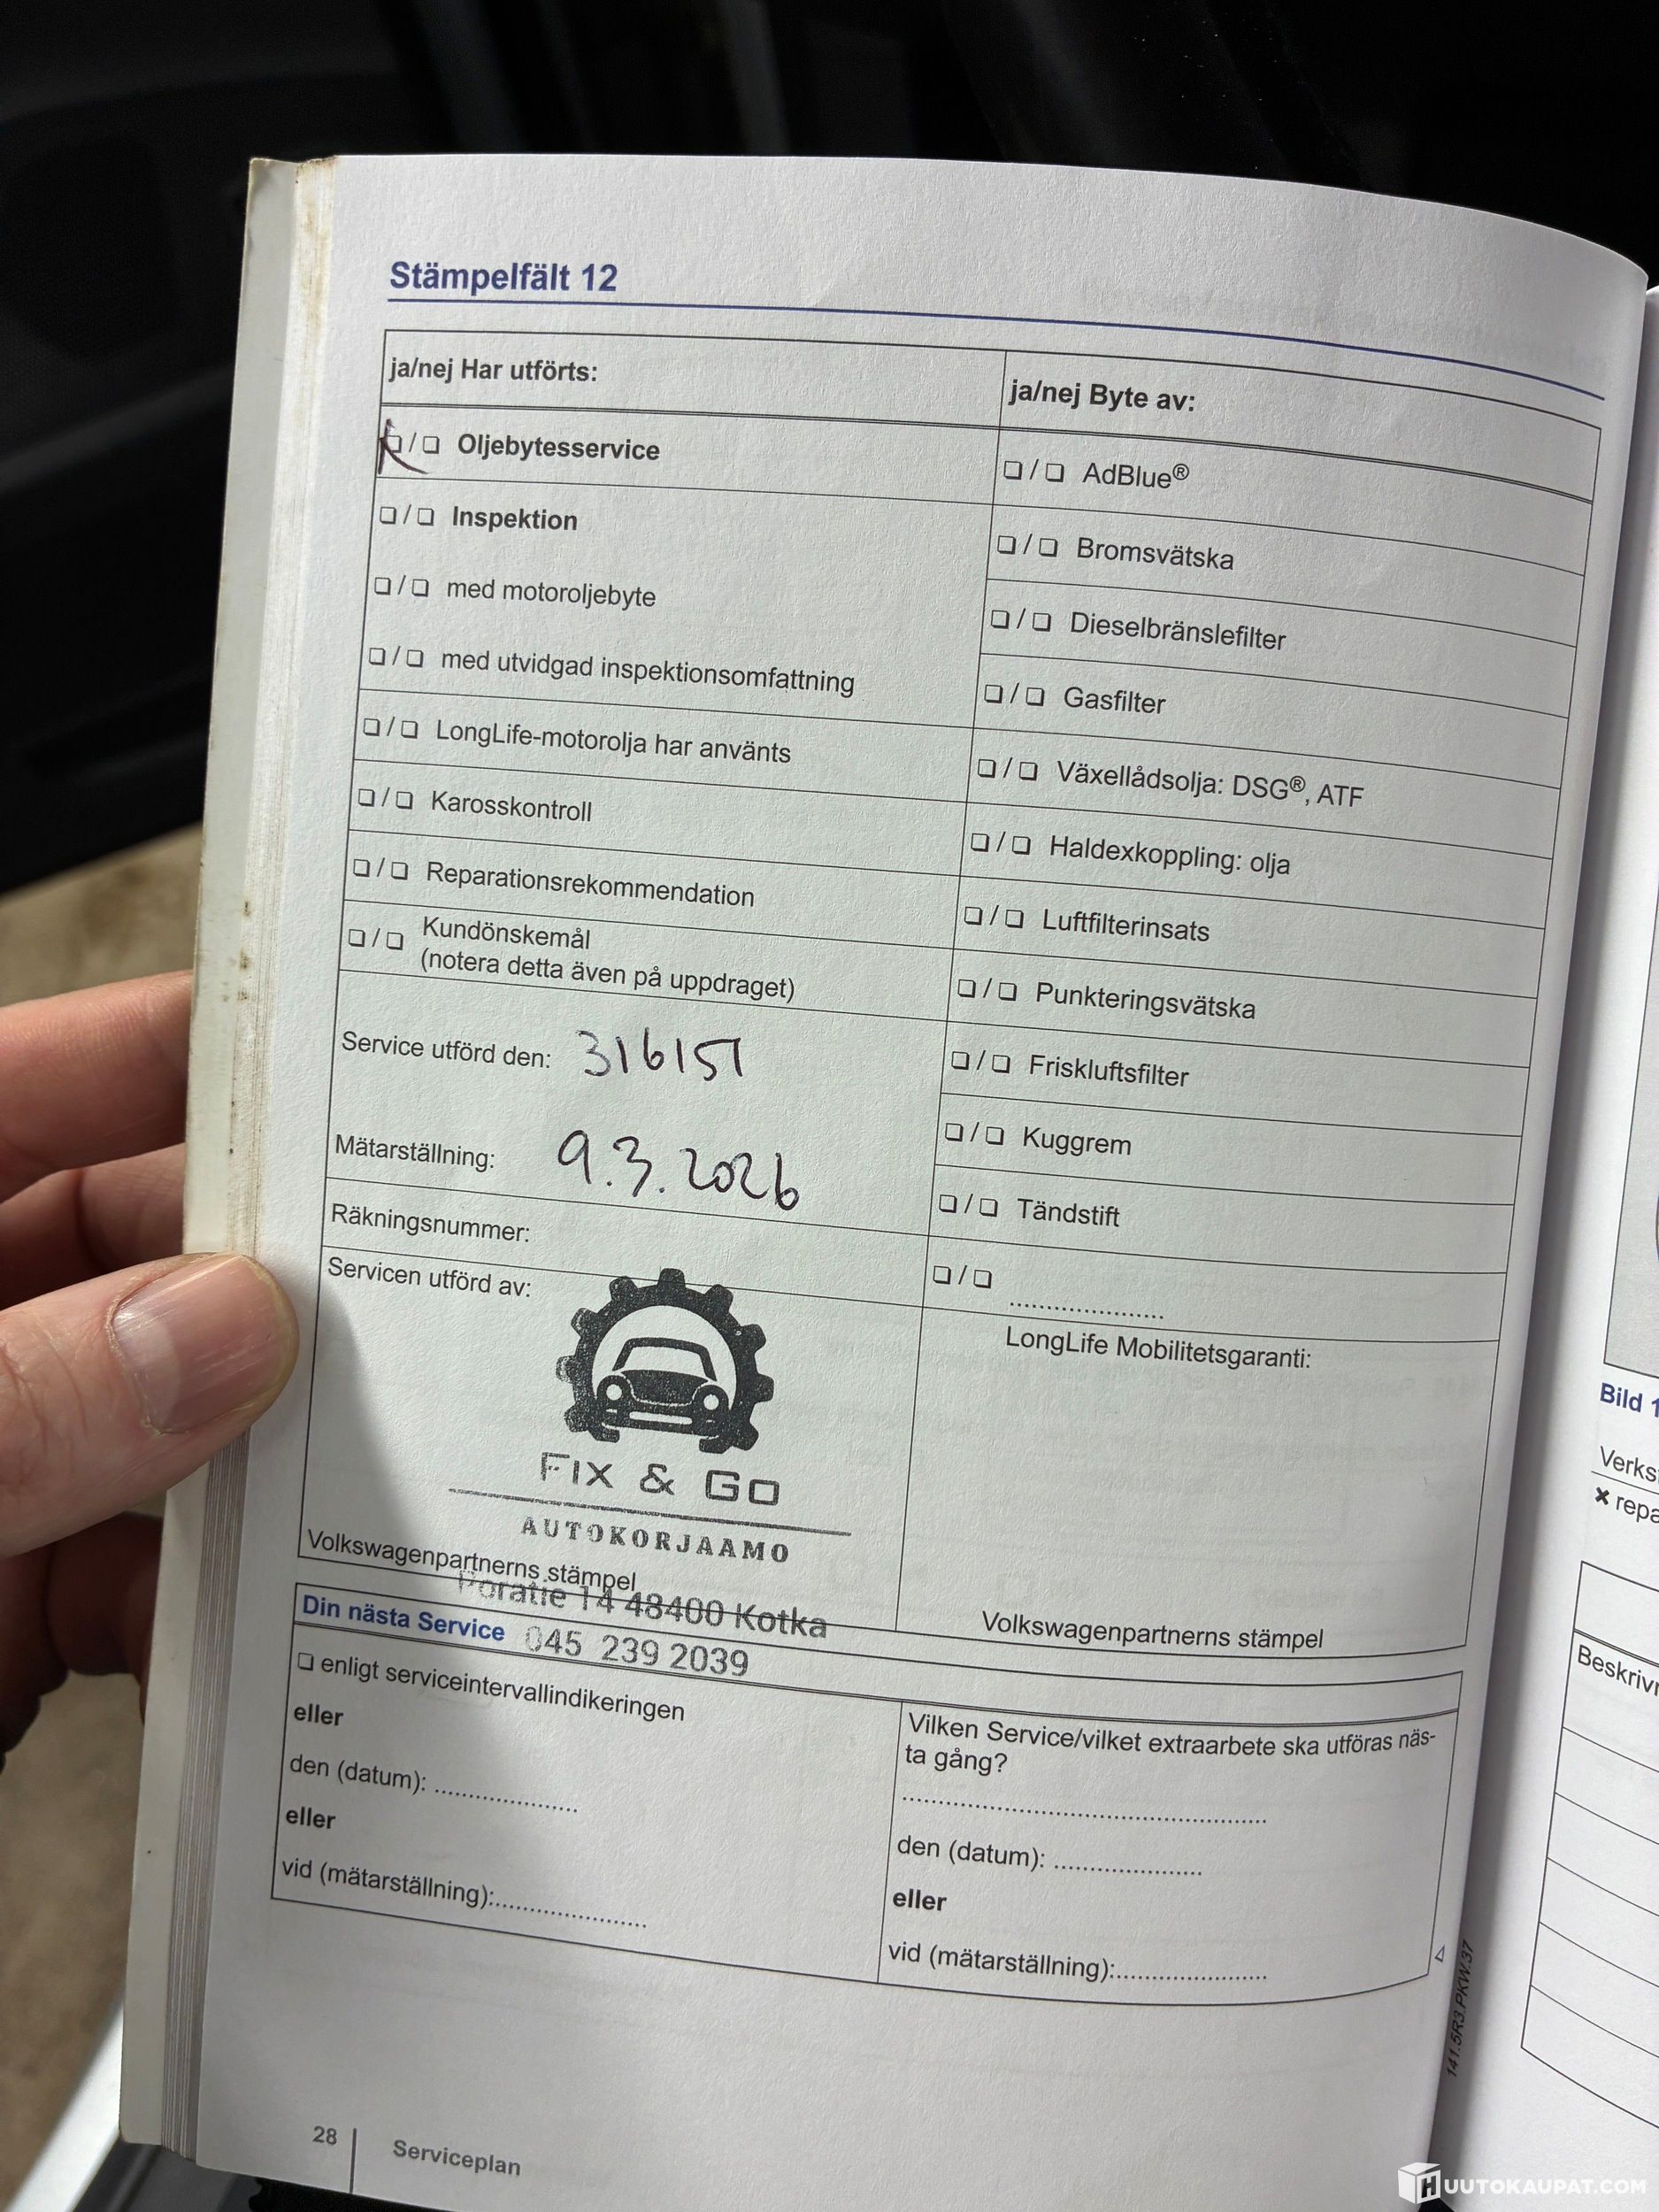 Stämpelfält 12
ja/nej Har utförts:
❏/❏ Oljebytesservice
❏/❏ Inspektion
❏/❏ med motoroljebyte
❏/❏ med utvidgad inspektionsomfattning
❏/❏ LongLife-motorolja har använts
❏/❏ Karosskontroll
❏/❏ Reparationsrekommendation
❏/❏ Kundönskemål
(notera detta även på uppdraget)
Service utförd den: 316151
Mätarställning: 9.3.2026
Räkningsnummer:
Servicen utförd av:
FIX & GO
AUTOKORJAAMO
Volkswagenpartnerns stämpel
Poratie 14 48400 Kotka
045 239 2039
ja/nej Byte av:
❏/❏ AdBlue®
❏/❏ Bromsvätska
❏/❏ Dieselbränslefilter
❏/❏ Gasfilter
❏/❏ Växellådsolja: DSG®, ATF
❏/❏ Haldexkoppling: olja
❏/❏ Luftfilterinsats
❏/❏ Punkteringsvätska
❏/❏ Friskluftsfilter
❏/❏ Kuggrem
❏/❏ Tändstift
❏/❏ .....................
LongLife Mobilitetsgaranti:
Volkswagenpartnerns stämpel
Din nästa Service
❏ enligt serviceintervallindikeringen
eller
den (datum): .....................
eller
vid (mätarställning):.....................
Vilken Service/vilket extraarbete ska utföras näs-
ta gång?
.....................
den (datum): .....................
eller
vid (mätarställning):.....................
141.5R3.PKW.37
28
Serviceplan
Bild 1
Verks
✖ repa
Beskrivn
HUUTOKAUPAT.COM